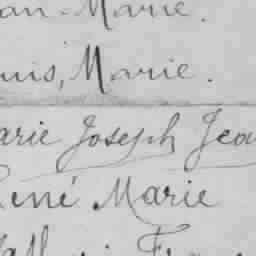 an-Marie.
uis, Marie.
arie Joseph Jea
René Marie